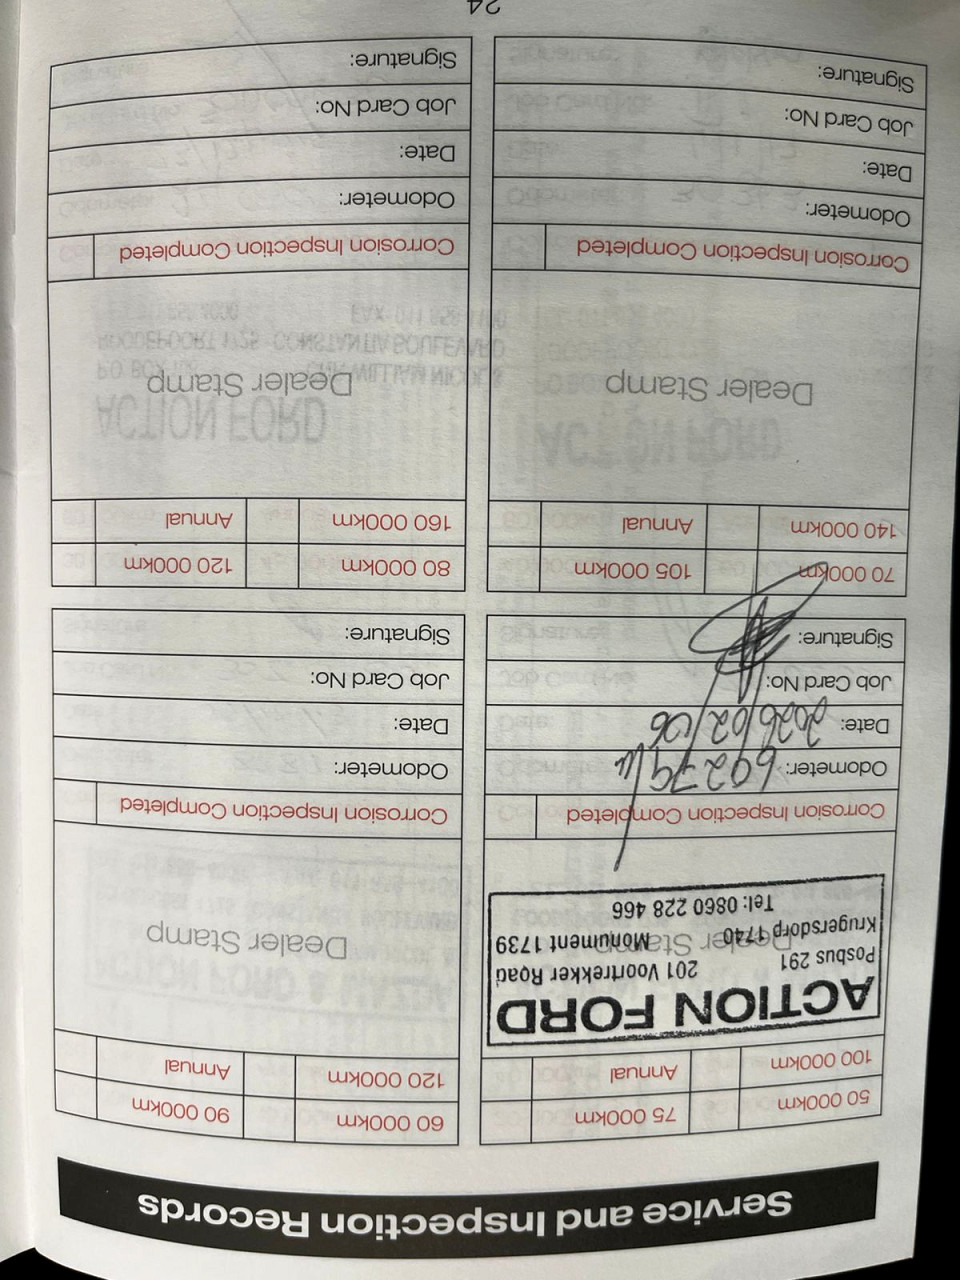 Service and Inspection Records
50 000km 75 000km
100 000km Annual
ACTION FORD
Posbus 291 201 Voortrekker Road
Krugersdorp 1740 Monument 1739
Dealer Stamp
Tel: 0860 228 466
Corrosion Inspection Completed
Odometer: 69279
Date: 2026/02/06
Job Card No:
Signature:
60 000km 90 000km
120 000km Annual
Dealer Stamp
Corrosion Inspection Completed
Odometer:
Date:
Job Card No:
Signature:
70 000km 105 000km
140 000km Annual
Dealer Stamp
Corrosion Inspection Completed
Odometer:
Date:
Job Card No:
Signature:
80 000km 120 000km
160 000km Annual
Dealer Stamp
Corrosion Inspection Completed
Odometer:
Date:
Job Card No:
Signature:
24